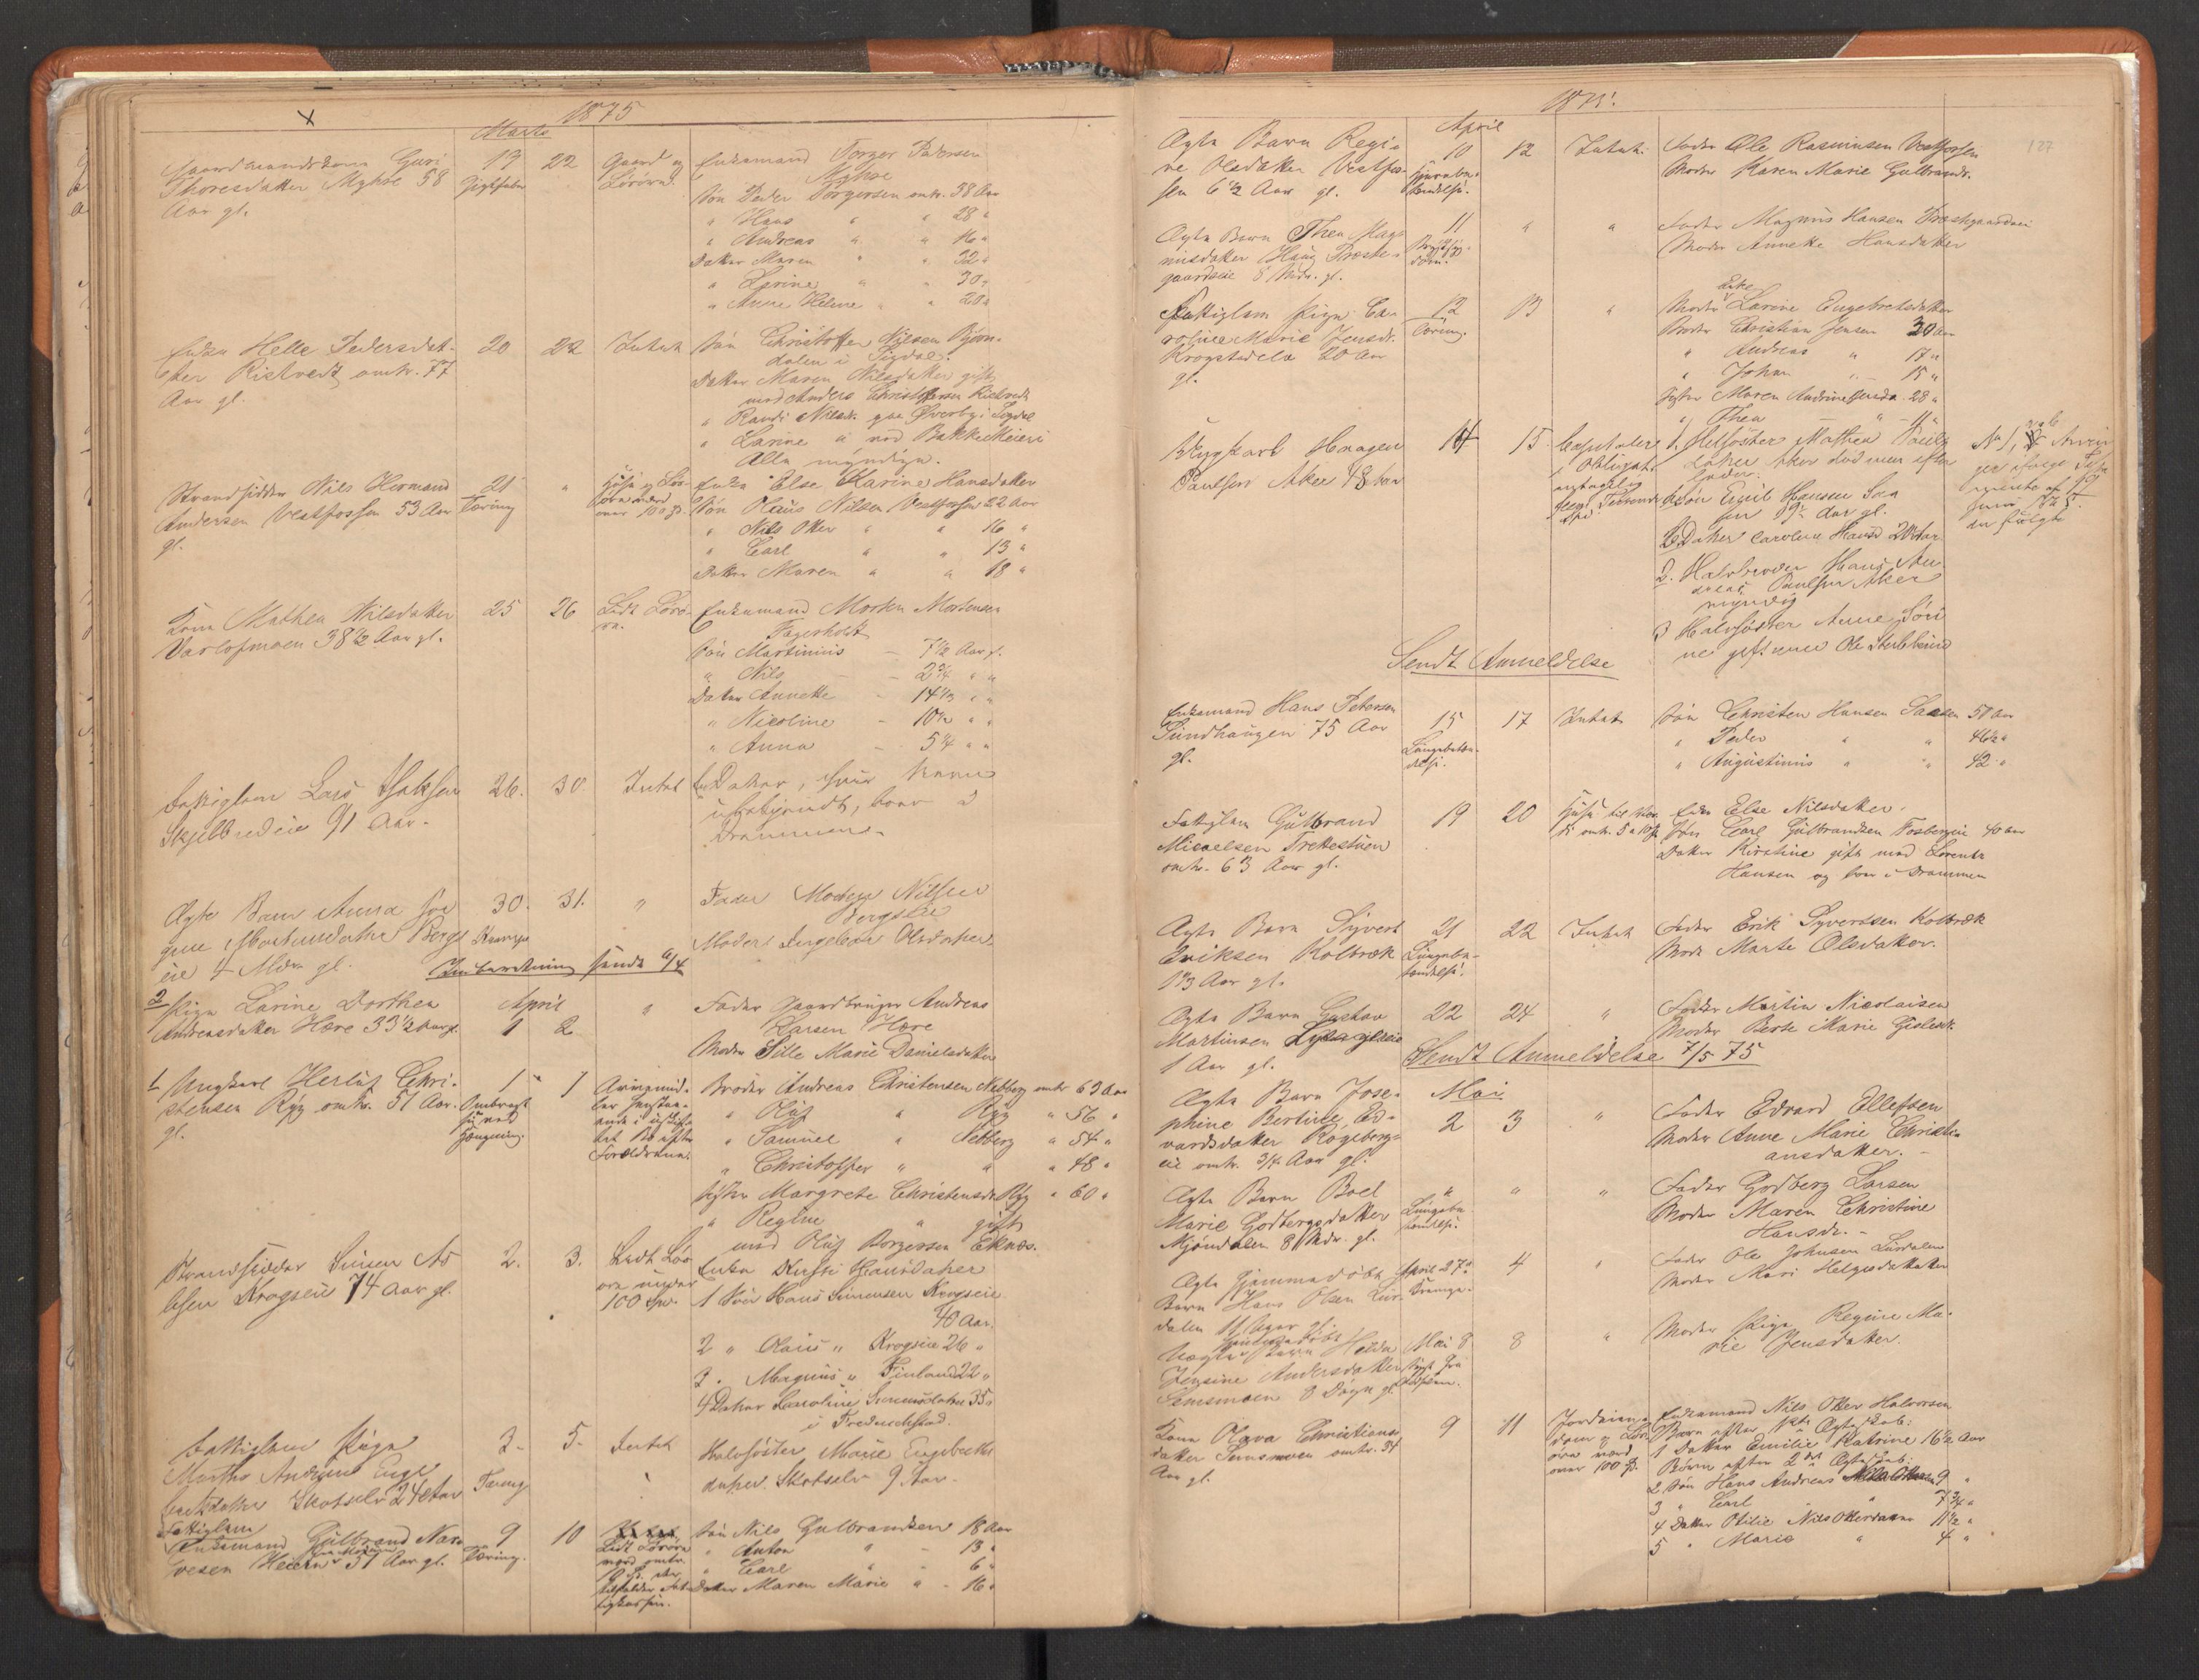 1875
Marts
Gaardmandskone Guri
Thoresdatter Myhre 58
Aar gl.
19
Gigtfeber
22
Gaard og
Lösöre
Enkemand Torger Pedersen
Myhre
Sön Peder Torgersen omtr. 38 Aar
" Hans " " 28 "
" Andreas " " 16 "
Datter Maren " " 32 "
" Lavine " " 30 "
" Anne Helene " " 20 "
Enke Helle Pedersdat-
ter Ristvedt omtr. 77
Aar gl.
20
22
Intet
Sön Christoffer Nilsen Björn-
dalen i Sigdal.
Datter Maren Nilsdatter gift
med Anders Christoffersen
" Randi Nilsdr. Överby i Sigdal
" Larine
Alle myndige.
Strandsidder Nils Herman
Andersen Vestfossen 53 Aar
gl.
21
Tæring
"
over 100 Spd.
Enke Else Karine Hansdatter
Sön Olaus Nilsen Vestfossen 22 Aar
" Nils Otter " " 16 "
" Carl " " 13 "
Datter Maren " " 18 "
Kone Mathea Nilsdatter
Varlofmoen 38½ Aar gl.
25
26
Lidt Lösö-
re.
Enkemand Morten Mortensen
Fagerholt
Sön Martinius — 7½ Aar gl.
" Nils — 2¾ " "
Datter Annette — 14½ " "
" Nicoline — 10½ " "
" Anna — 5¾ " "
Fattiglem Lars Isaksen
Skjelbredeie 91 Aar.
26.
30.
Intet
En Datter, hvis Navn
er ubekjendt, boer i
Drammen.
Ægte Barn Anna
Bergs
eie 4 Mdr. gl.
30.
Krampe
31.
"
Fader Mathias Nilsen
Bergseie
Moder Ingeborg Olsdatter
Indberetning sendt 6/4
2
Pige Larine Dorthea
Andreasdatter Hore 33½ Aar gl.
April
1
2
"
Fader Gaardbruger Andreas
Larsen Hore
Moder Sille Marie Danielsdatter
1
Ungkarl Herluf Chri-
stensen Ryg omtr. 51 Aar.
gl.
1
Ombragt
sig ved
Hængning.
1
Arvemid-
ler
Forældrene.
Broder Andreas Christensen Nedberg omtr 63 Aar
" Oluf " Ryg " 56 "
" Samuel " Nedberg " 54 "
" Christoffer " " " 48 "
Söster Margrete Christensdr. Ryg " 60 "
" Regine " gift
med Oluf Borgersen Eknes.
Strandsidder Simen
Krogseie 74 Aar gl.
2.
3.
Lidt Lös-
öre under
100 Spd.
Enke Kirsti Hansdatter
1 Sön Hans Simensen Krogseie
40 Aar.
2 " Olaus " Krogseie 26 "
3 " Magnus " Finland 22 "
4 Datter Karoline Simensdatter 35
i Fredrikstad.
Fattiglem Pige
Marthe Andrine Enge-
bretsdatter Skotselv 24 Aar
3.
Tæring
5.
Intet
Halvsöster Marie Engebrets
datter Skotselv 9 Aar.
Fattiglem
Enkemand Gulbrand Nar-
vesen Heiern 51 Aar gl.
9
Tæring.
10
Lidt Lösöre
Sön Nils Gulbrandsen 18 Aar
" Anton " - 13 "
" Carl " - 6 "
Datter Maren Marie " - 16 "
1875.
127
April
Ægte Barn Regi-
ne Olsdatter Vestfos-
sen 6½ Aar gl.
10
Hjernebe-
tændelse.
12
Intet.
Fader Ole Rasmussen Vestfossen
Moder Karen Marie Gulbrandsdr.
Ægte Barn Thea Mag-
nusdatter Haug Præste-
gaardseie 8 Mdr. gl.
11
Brystsyg-
dom.
"
"
Fader Magnus Hansen Præstegaardseie
Moder Anneke Hansdatter
Fattiglem Pige Ca-
roline Marie Jensdr.
Krogstadelv 20 Aar
gl.
12
Tæring.
13
"
Moder Enke Larine Engebretsdatter
Broder Christian Jensen 30 Aar
" Andreas " 17 "
" Johan " — 15 "
Söster Maren Andrine Jensdr. 28 "
" Thea — " 11 "
Ungkarl Haagen
Paulsen Aker 48 Aar
14
15.
Capitaler
1. Helsöster Mathea Pauls
datter Aker död men efter
lader:
a Sön Emil Hansen Saa
sen 19 Aar gl.
b Datter Caroline Hansd. 20 Aar
2. Halvbroder Hans An-
dreas Paulsen Aker
myndig
3 Halvsöster Anne Söri
ne gift med Ole
Sendt Anmeldelse
Enkemand Hans Petersen
Sundhaugen 75 Aar
gl.
15
Lungebetæn-
delse.
17
Intet
Sön Christen Hansen Saasen 50 Aar
" Peder " " 46½ "
" Augustinius " " 42 "
Fattiglem Gulbrand
Micaelsen Trettestuen
omtr. 63 Aar gl.
19
20
Enke Else Nilsdatter.
Sön Carl Gulbrandsen Fosbergeie 40 Aar
Datter Kirstine gift med Lorents
Hansen og boer i Drammen
Ægte Barn Syvert
Eriksen Kolbræk
1⅓ Aar gl.
21
Lungebe-
tændelse.
22
Intet
Fader Erik Syvertsen Kolbræk
Mode Marte Olsdatter.
Ægte Barn Gustav
Martinsen
1 Aar gl.
22
24
"
Fader Martin Nicolaisen
Moder Berte Marie Gislesdr.
Sendt Anmeldelse 7/5 75
Mai
Ægte Barn Jose-
phine Bertine Ed-
vardsdatter Rogeberg-
eie omtr. 3/4 Aar gl.
2
3
"
Fader Edvard Ellefsen
Moder Anne Marie Christi-
ansdatter. -
Ægte Barn Boel
Marie Godbergsdatter
Mjöndalen 8 Mdr. gl.
"
Lungebe-
tændelse.
"
"
Fader Godberg Larsen
Moder Maren Christine
Hansdr. -
Ægte Hjemmedöbt
Barn Hans Olsen Lur-
dalen
April 27de
Krampe.
4
"
Fader Ole Johnsen Lurdalen
Moder Mari Helgesdatter
Uægte hjemmedöbt Barn Helda
Jensine Andersdatter
Semsmoen 8 Dage gl.
Mai 8
8
"
Moder Pige Regine Ma-
rie Jensdatter.
Kone Olava Christians-
datter Semsmoen omtr. 34
Aar gl.
9
11
Jordeien-
dom og Lös-
öre værd
over 100 Spd.
Enkemand Nils Otter Halvorsen
Barn efter 1ste Ægteskab:
1 Datter Emilie Katrine 16½ Aar
Börn efter 2det Ægteskab:
2 Sön Hans Andreas Nils Ottersen 9 "
3 " Carl " 7¾ "
4 Datter Otilie Nils Ottersdatter 11½ "
5 " Marie " 4 "